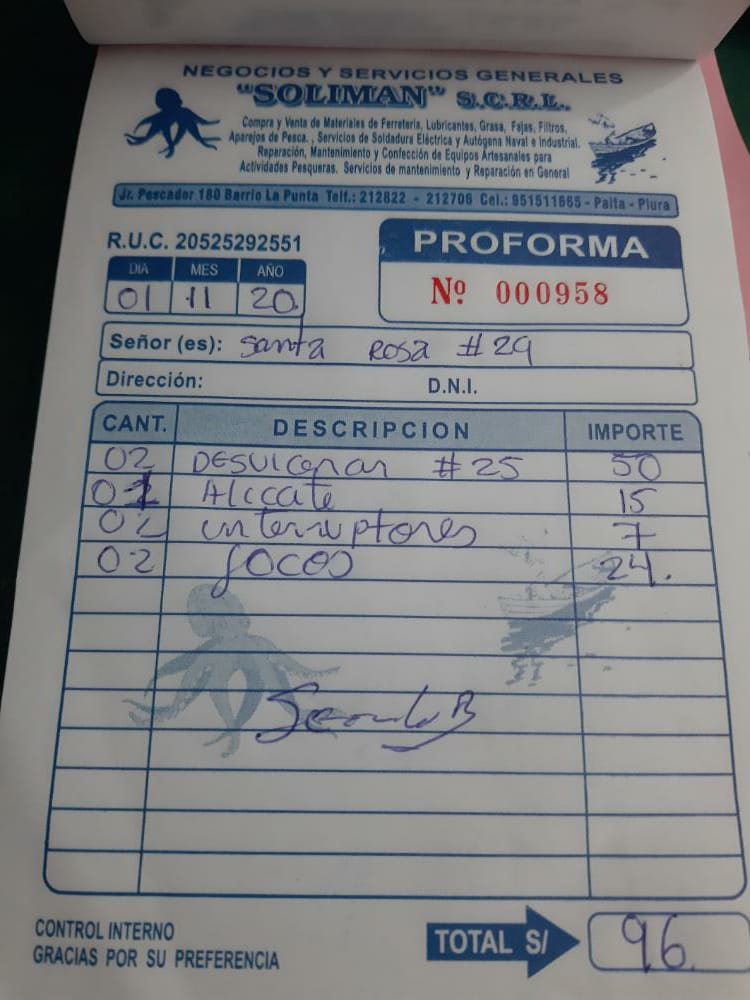 NEGOCIOS Y SERVICIOS GENERALES
"SOLIMAN" S.C.R.L.
Compra y Venta de Materiales de Ferreteria, Lubricantes, Grasa, Fajas, Filtros,
Aparejos de Pesca. , Servicios de Soldadura Eléctrica y Autógena Naval e Industrial.
Reparación, Mantenimiento y Confección de Equipos Artesanales para
Actividades Pesqueras. Servicios de mantenimiento y Reparación en General
Jr. Pescador 180 Barrio La Punta Telf.: 212822 - 212706 Cel.: 951511665 - Paita - Piura
R.U.C. 20525292551
PROFORMA
Nº 000958
DIA MES AÑO
01 11 20
Señor (es): Santa Rosa #29
Dirección: D.N.I.
CANT. DESCRIPCION IMPORTE
02 #25 50
01 Aliccate 15
02 interruptores 7
02 focos 24.
CONTROL INTERNO
GRACIAS POR SU PREFERENCIA
TOTAL S/ 96